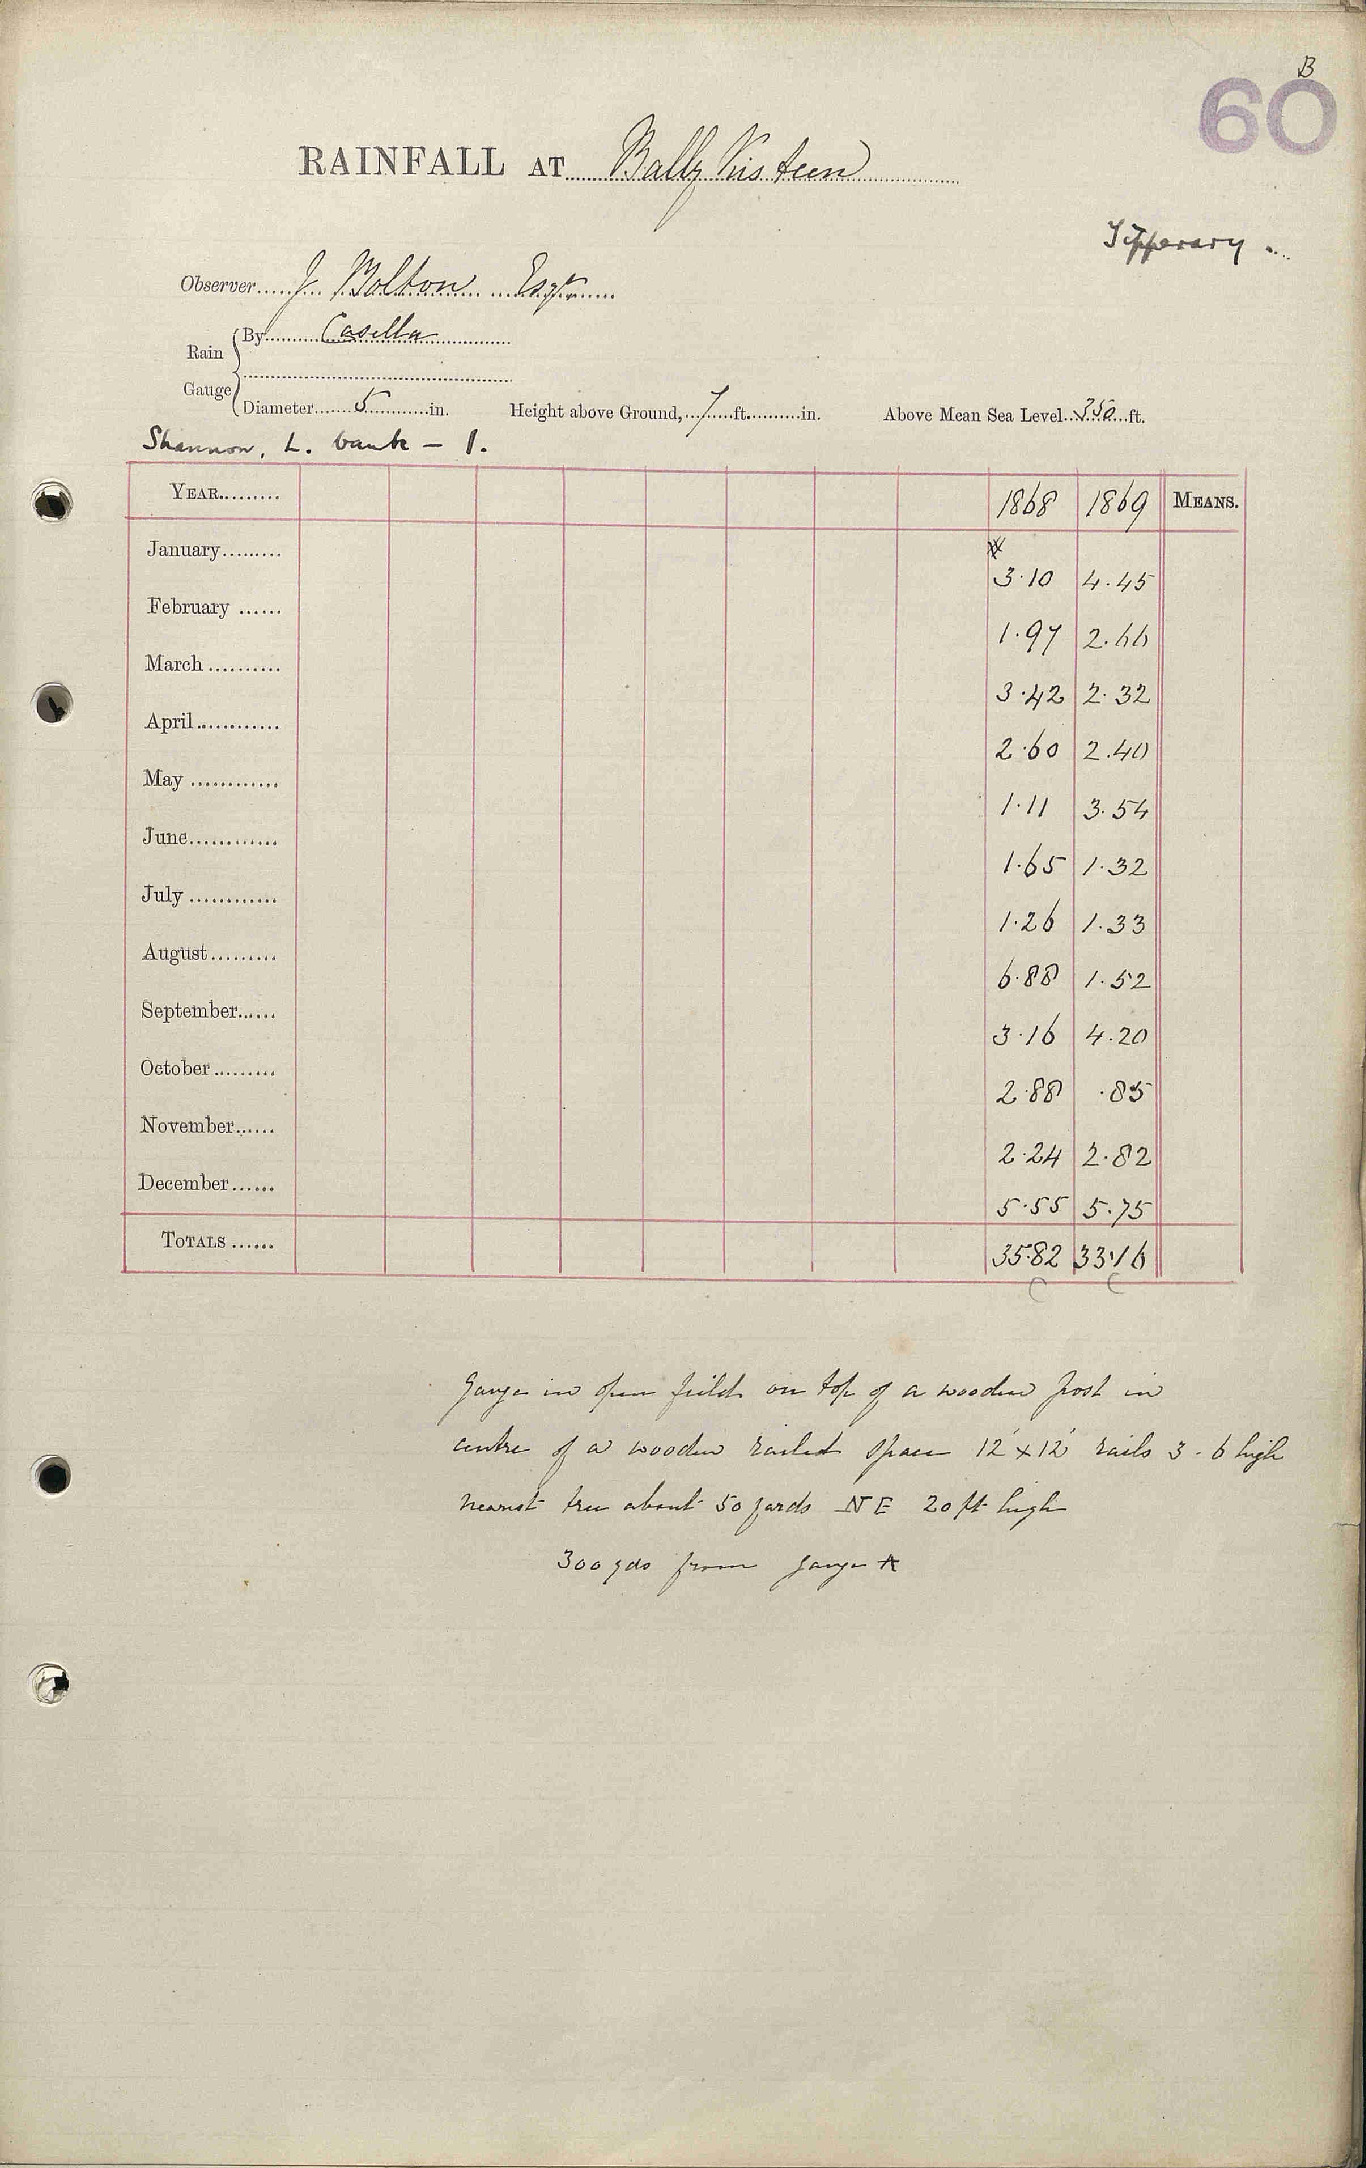 B
60
RAINFALL AT Bally Kisteen
Tipperary
Observer J Bolton Esqr
Rain Gauge { By Casella
Diameter 5 in. Height above Ground, 7 ft. in. Above Mean Sea Level 350 ft.
Shannon, L. bank – 1.
YEAR 1868 1869 MEANS.
January 3.10 4.45
February 1.97 2.66
March 3.42 2.32
April 2.60 2.40
May 1.11 3.54
June 1.65 1.32
July 1.26 1.33
August 6.88 1.52
September 3.16 4.20
October 2.88 .85
November 2.24 2.82
December 5.55 5.75
TOTALS 35.82 33.16
Gauge in open field on top of a wooden post in
centre of a wooden railed space 12' x 12' rails 3 - 6 high
nearest tree about 50 yards NE 20 ft high
300 yds from gauge A